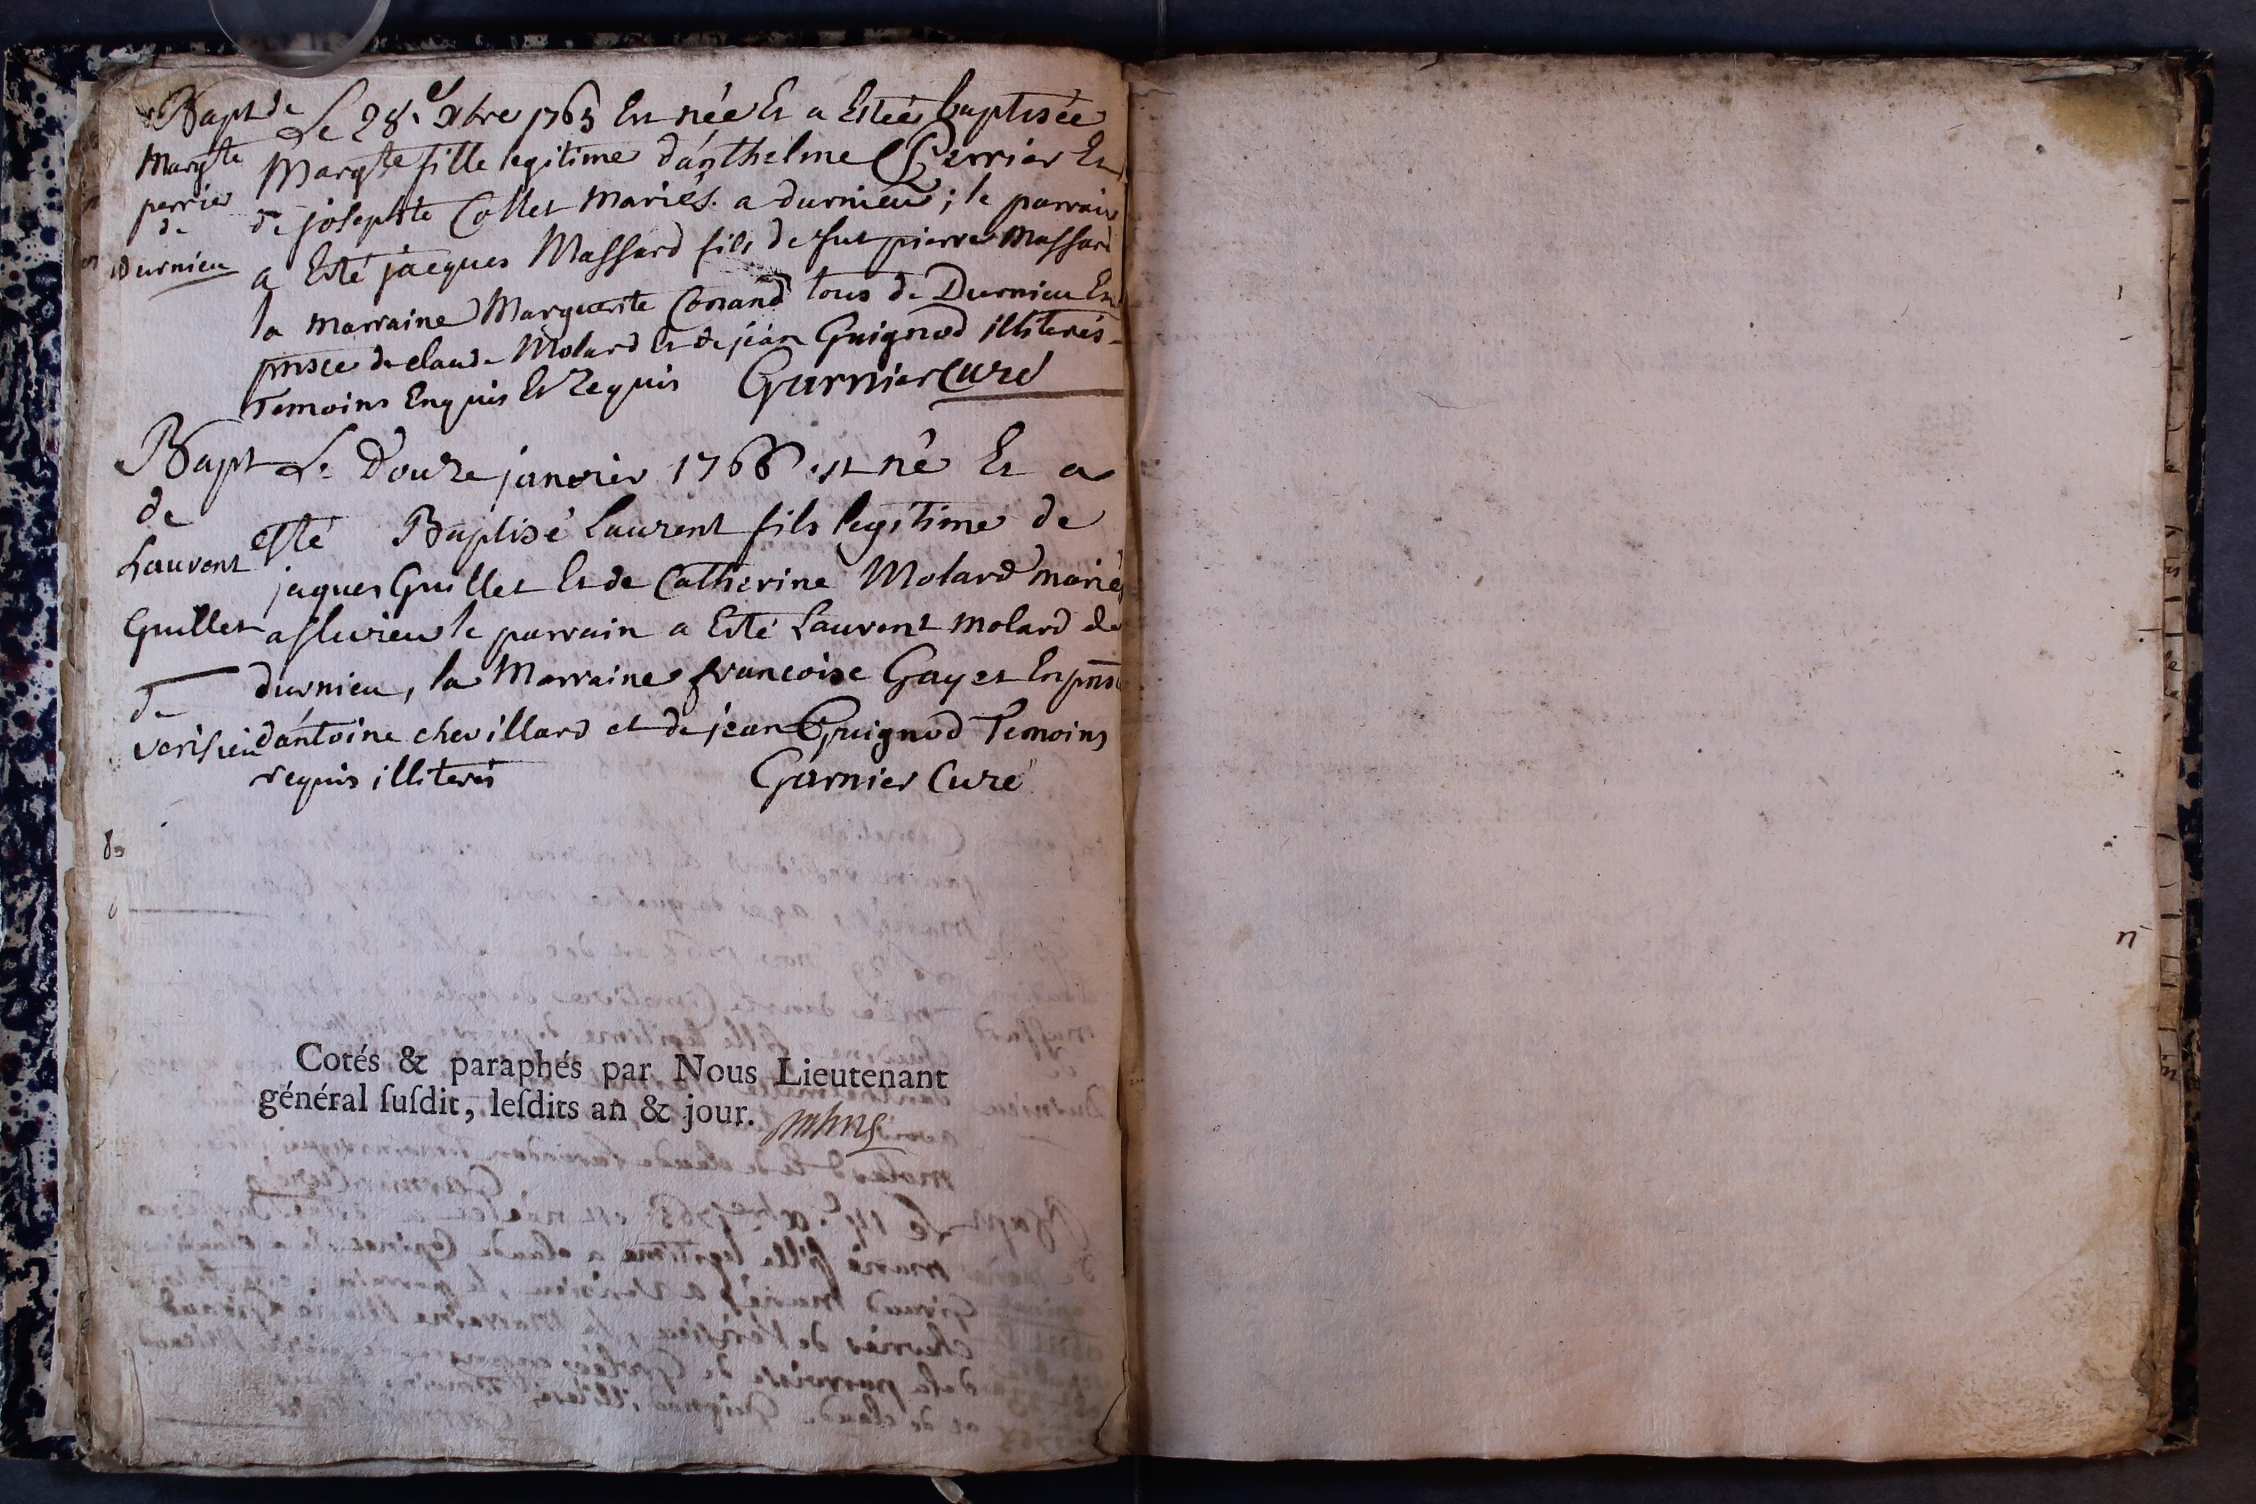 Bapt de
Margte
perrier
de
Durnieu
Le 28e Xbre 1765 Est née Et a Estée baptisée
Margte fille legitime d'anthelme Perrier Et
de josephte Collet mariés a durnieu; le parrain
a Esté jacques Massard fils de fut pierre Massard
la marraine Marguerite Conand tous de Durnieu En
pnsce de claude Molard Et de jean Guignod illiterés
Temoins Enquis Et Requis Garnier Curé
Bapt
de
Laurent
Guillet
de
verisieu
Le Douze janvier 1766 est né Et a
esté Baptisé Laurent fils legitime de
jaques Guillet Et de Catherine Molard mariés
a slurieu le parrain a Esté Laurent molard de
durnieu, la Marraine francoise Gayet En pnsce
d'antoine chevillard et de jean Guignod Temoins
requis illiterés Garnier Curé
Cotés & paraphés par Nous Lieutenant
général suſdit, leſdits an & jour.